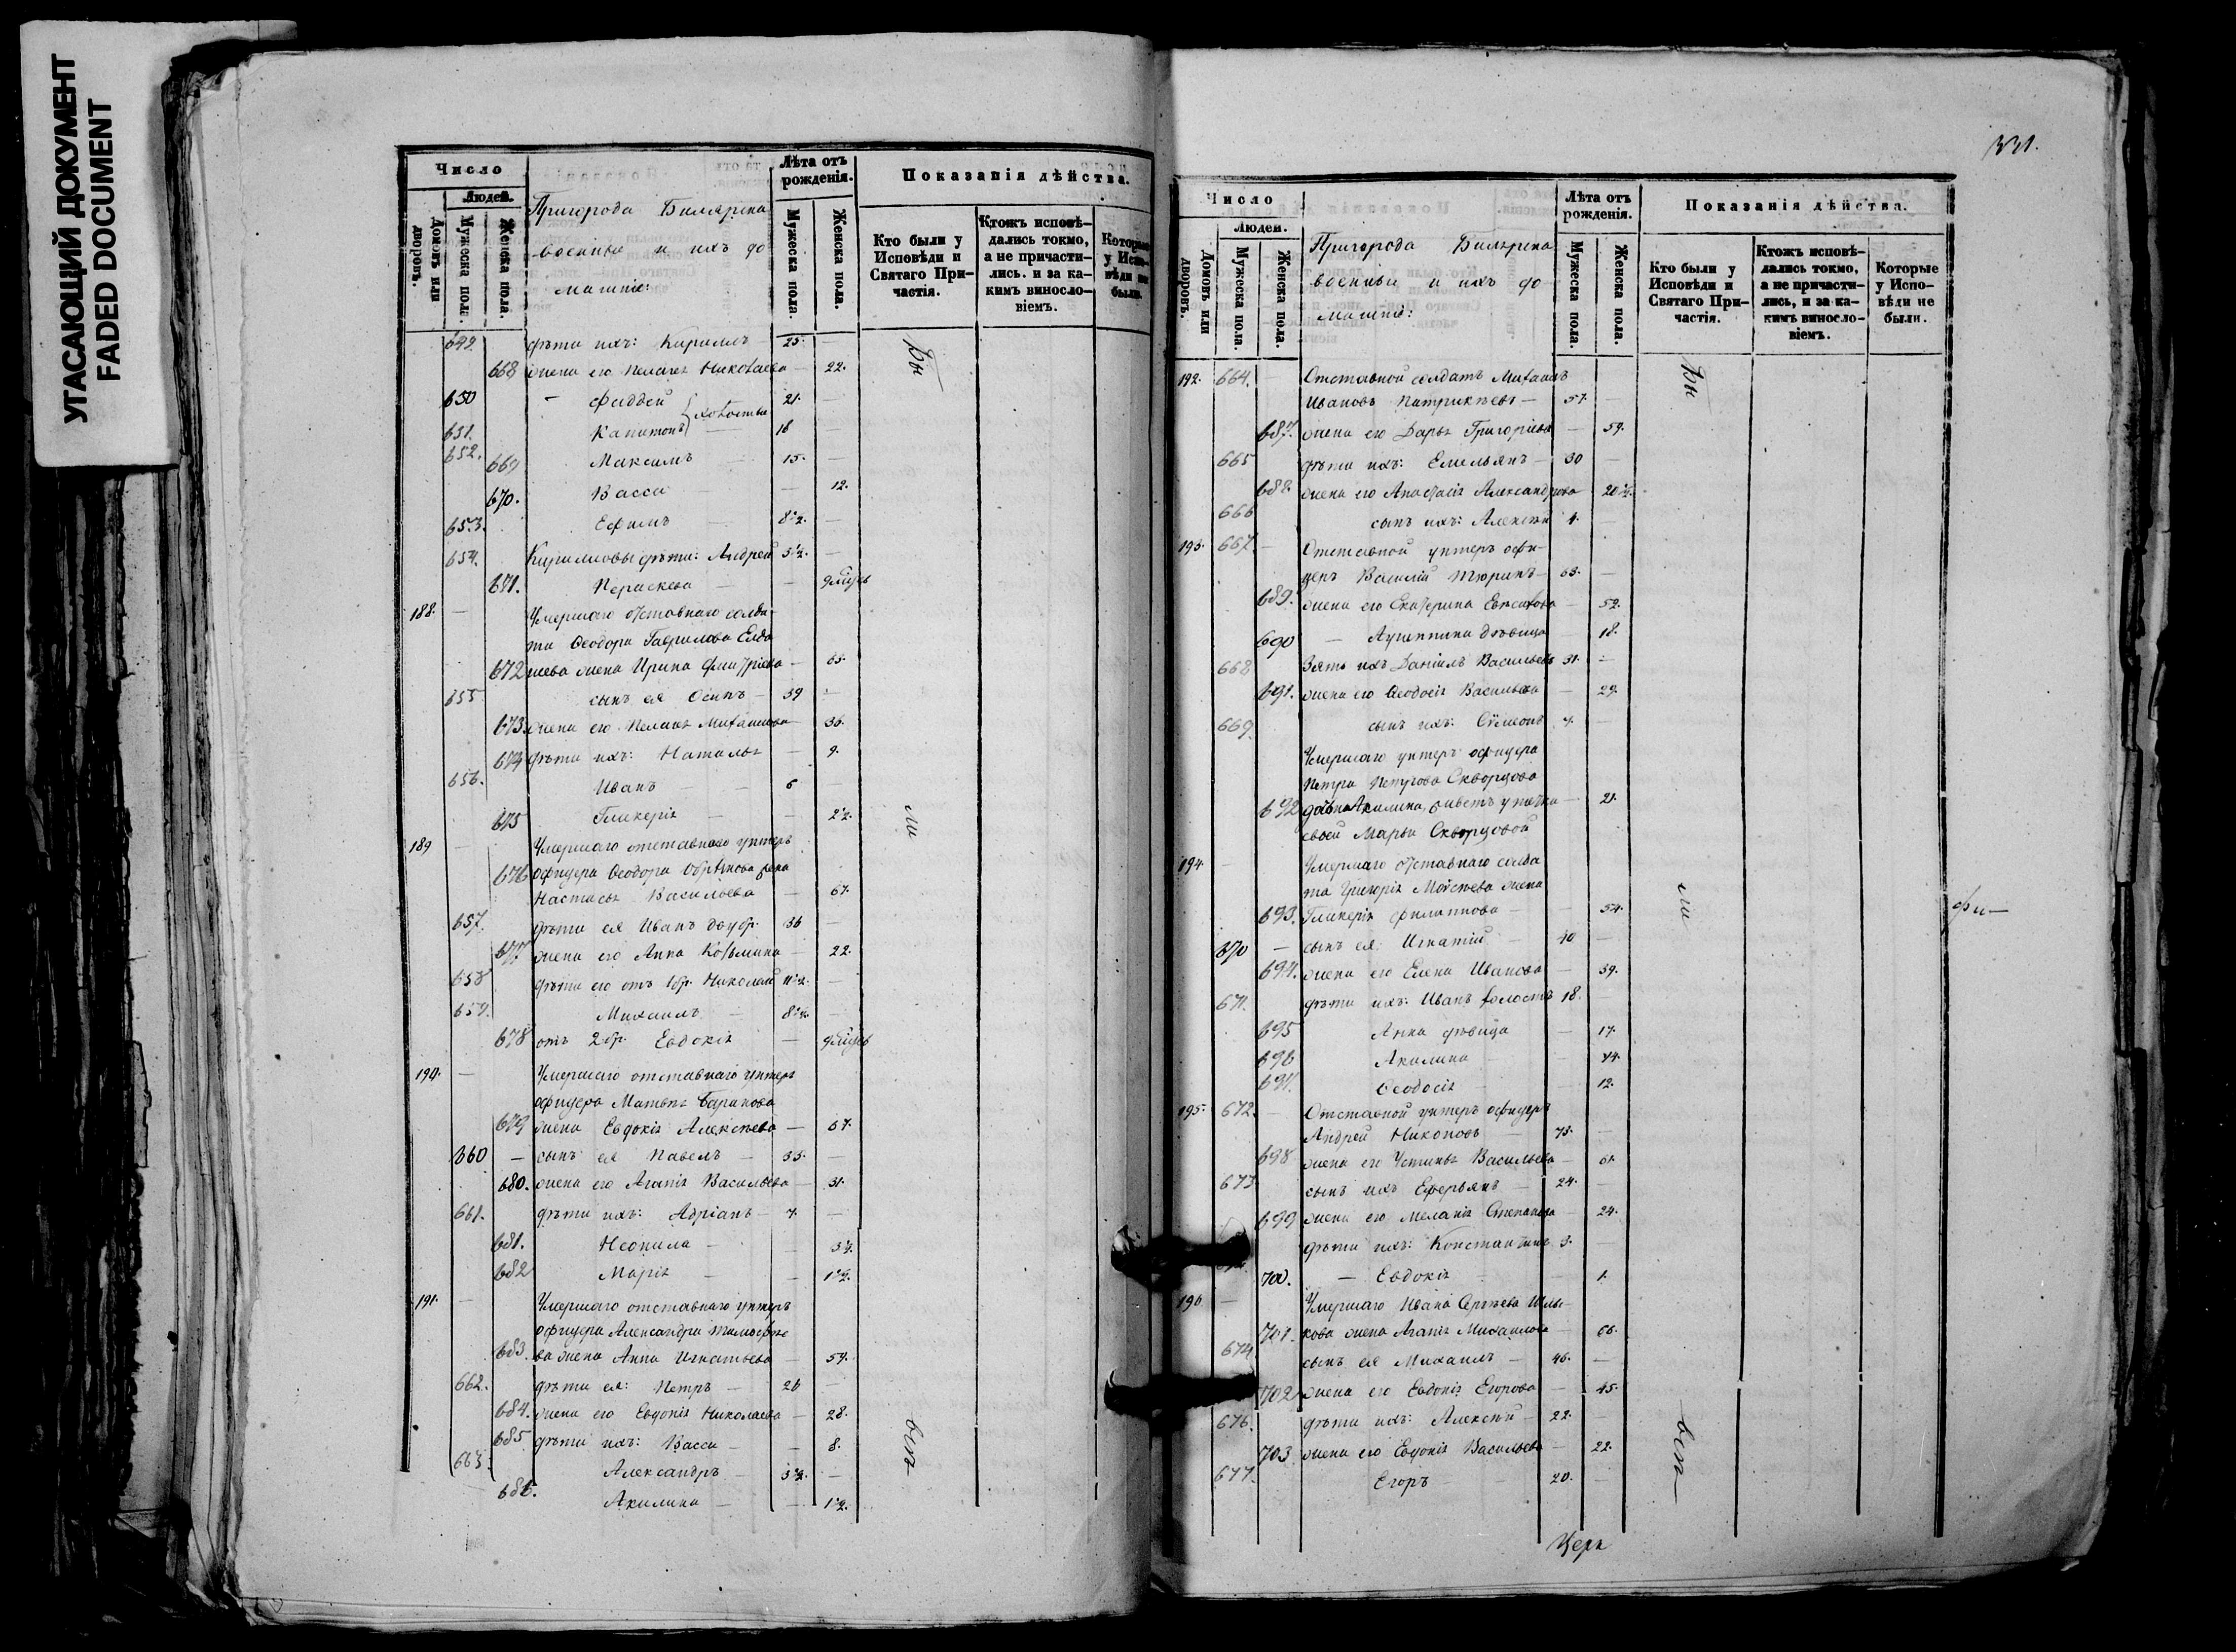 УГАСАЮЩИЙ ДОКУМЕНТ
FADED DOCUMENT
Число
Людей.
Домовъ или дворовъ.
Мужеска пола.
Женска пола.
Пригорода Билярска
военные и ихъ до
машніе:
Лѣта отъ рожденія.
Мужеска пола.
Женска пола.
Показанія дѣйства.
Кто были у Исповѣди и Святаго Причастія.
Ктожъ исповѣдались токмо, а не причастились. и за какимъ винословіемъ.
Которые у Исповѣди не были.
649. дѣти ихъ: Кирилъ — 25. —
668 жена его Пелагея Николаева — 22.
650 — Фаддей } холосты 21. —
651. Капитонъ 16 —
652. 669 Максимъ — 15. —
670. Васса — — 12.
653. Ефимъ — 8½. —
654. Кириловы дѣти: Андрей 3½. —
671. Параскева — —
188. — Умершаго отставнаго солда-
та Ѳеодора Гаврилова
672 жена Ирина Дмитріева — 65.
655 сынъ ея Осипъ — 39 —
673. жена его Пелагея Михаилова — 36.
674 дѣти ихъ: Наталья — 9.
656. Иванъ — — 6
675 Гликерія — — 2½.
189 — Умершаго отставнаго унтеръ
676 офицера Ѳеодора жена
Настасья Васильева — 67.
657. дѣти ея Иванъ 36 —
677 жена его Анна Козьмина — 22.
658 дѣти его отъ 1 бр. Николай 11½. —
659. Михаилъ — 8½. —
678 отъ 2 бр. Евдокія —
190. — Умершаго отставнаго унтеръ
офицера Матвея Баранова
679 жена Евдокія Алексѣева — 57.
660 — сынъ ея Павелъ — 35. —
680. жена его Агапія Васильева — 31.
661. дѣти ихъ: Адріанъ — 7. —
681. Неонила — —
682 Марія — —
191. — Умершаго отставнаго унтеръ
офицера Александра Тимофѣе
683. ва жена Анна Игнатьева — 57.
662. дѣти ея: Петръ — 26 —
684. жена его Евдокія Николаева — 28.
685 дѣти ихъ: Васса — — 8.
663. Александръ — 3½. —
686. Акилина — — 1½.
Бы
ли
всѣ
331.
Число
Людей.
Домовъ или дворовъ.
Мужеска пола.
Женска пола.
Пригорода Билярска
военные и ихъ до
машніе:
Лѣта отъ рожденія.
Мужеска пола.
Женска пола.
Показанія дѣйства.
Кто были у Исповѣди и Святаго Причастія.
Ктожъ исповѣдались токмо, а не причастились, и за какимъ винословіемъ.
Которые у Исповѣди не были.
192. 664. — Отставной солдатъ Михаилъ
Ивановъ Патрикѣевъ — 57. —
687. жена его Дарья Григорьева — 59.
665 дѣти ихъ: Емельянъ — 30 —
688. жена его Анастасія Александрова —
666 сынъ ихъ: Алексѣй —
193. 667. — Отставной унтеръ офи-
церъ Василій Тюринъ — 63. —
689. жена его Екатерина — 52.
690 — Агриппина дѣвица — 18.
668 Зять ихъ Даніилъ Васильевъ 31. —
691. жена его Ѳеодосія Васильева — 29.
669. сынъ ихъ: Сѵмеонъ 4. —
Умершаго унтеръ офицера
Петра Петрова Скворцова
692 дочь Акилина, живетъ у матки — 21.
своей Марьи Скворцовой
194. — Умершаго отставнаго солда
та Григорія Моѵсеева жена
693. Гликерія Филиппова — 54.
670 — сынъ ея: Игнатій — 40 —
694. жена его Елена Иванова — 39.
671. дѣти ихъ: Иванъ холостъ 18. —
695 Анна дѣвица — 17.
696 Акилина — 14.
697. Ѳеодосія — 12.
195. 672. — Отставной унтеръ офицеръ
Андрей Никоновъ — 73. —
698 жена его Устинья Васильева — 61.
673 сынъ ихъ — 24. —
699 жена его Меланія Степанова — 24.
дѣти ихъ: Константинъ 3. —
700. — Евдокія — 1.
196 — Умершаго Ивана Сергѣева
701. кова жена Агапія Михаилова — 66.
674 сынъ ея Михаилъ — 46. —
702 жена его Евдокія Егорова — 45.
676. дѣти ихъ: Алексѣй — 22. —
703 жена его Евдокія Васильева — 22.
677. Егоръ — 20. —
Бы
ли
всѣ
Церк